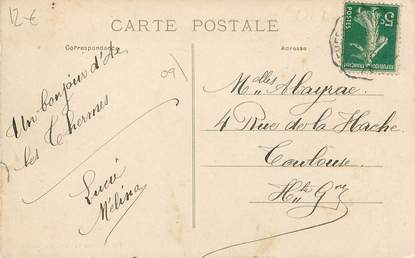 12 €
CARTE POSTALE
Correspondance
Adresse
09
5c
POSTES
Un bonjour d'Ax
les Thermes
Lucie
Mélina
Mlles Abayrac
4 Rue de la Hache
Toulouse
Hte Gne